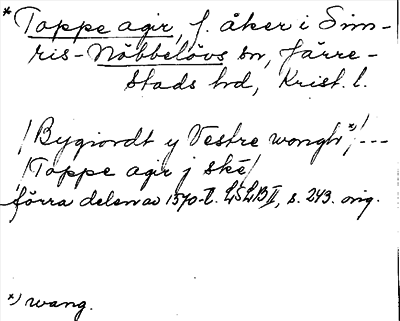 * Toppe agir, f. åker i Sim-
ris-Nöbbelövs sn, Järre-
stads hd, Krist. l.
/Bygiordt y Vestre wongh*)/---
/Toppe agr j ské/
förra delen av 1570-t. LSLB II, s. 243. orig.
*) wang.